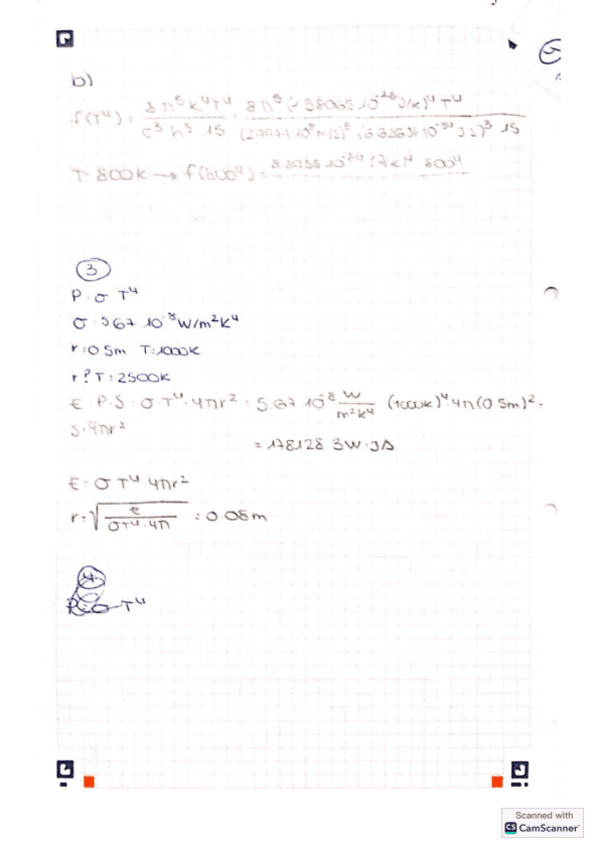 b)
f(T⁴) = 8π⁵k⁴T⁴ / c³ h³ 15 = 8π⁵ (1 38065 10⁻²³ J/k)⁴ T⁴ / (2 9979 10⁸ m/s)³ (6 62638 10⁻³⁴ J s)³ 15
T 800k → f(800⁴) =
3
P = σ T⁴
σ = 5 67 10⁻⁸ W/m²k⁴
r = 0 5m T = 1000k
r? T = 2500k
E = P · S = σ · T⁴ · 4πr² = 5 67 10⁻⁸ W/m²k⁴ (1000k)⁴ 4π (0 5m)² =
S = 4πr²
= 178128 3W = J/s
E = σ T⁴ 4πr²
r = √(E / σT⁴ · 4π) = 0 08m
4
P = σ T⁴
Scanned with
CS CamScanner